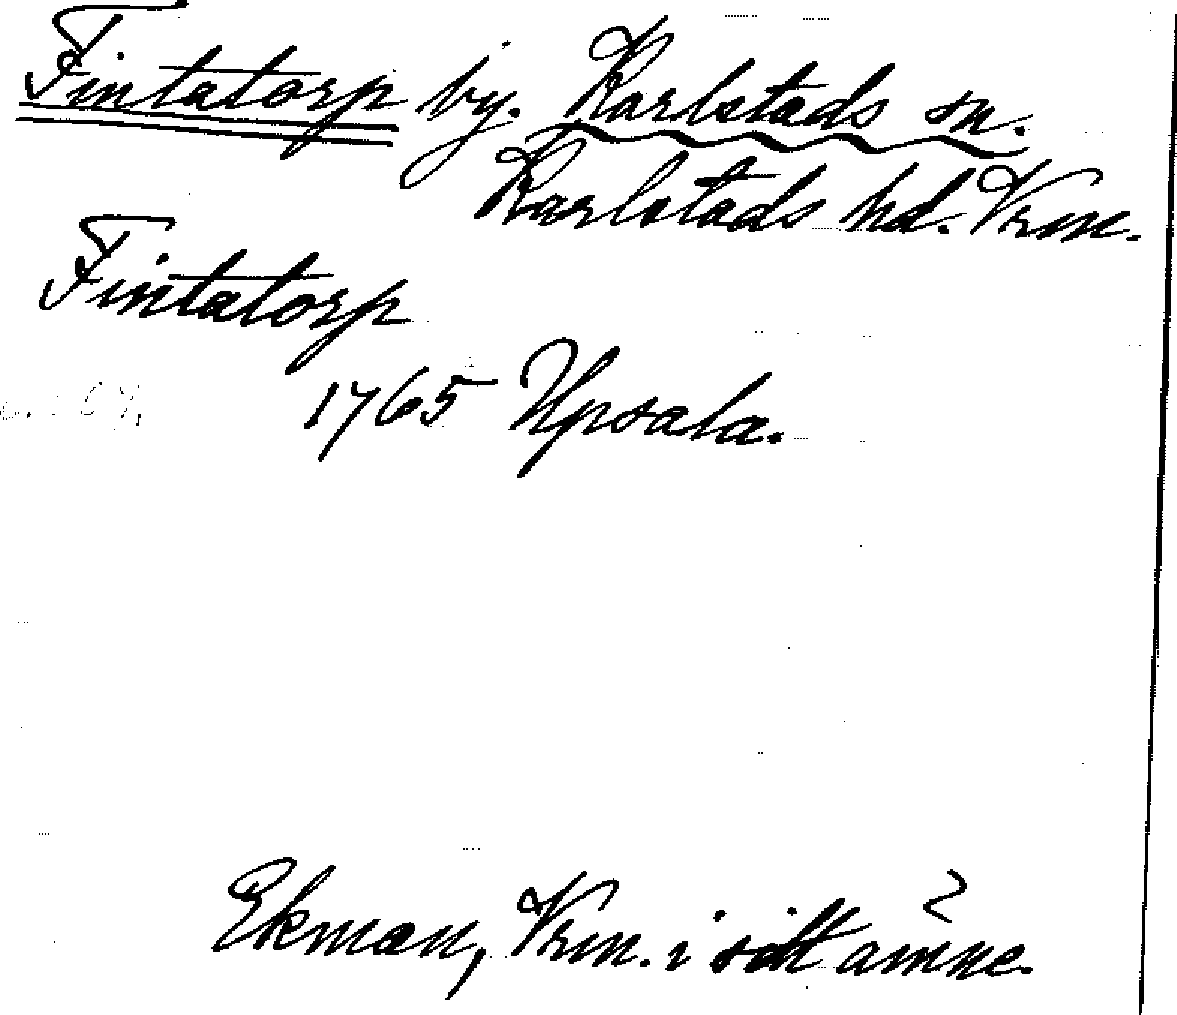 Fintatorp by. Karlstads sn.
Karlstads hd. Vrm.
Fintatorp
1765 Upsala.
Ekman, Vrm. i sitt ämne.